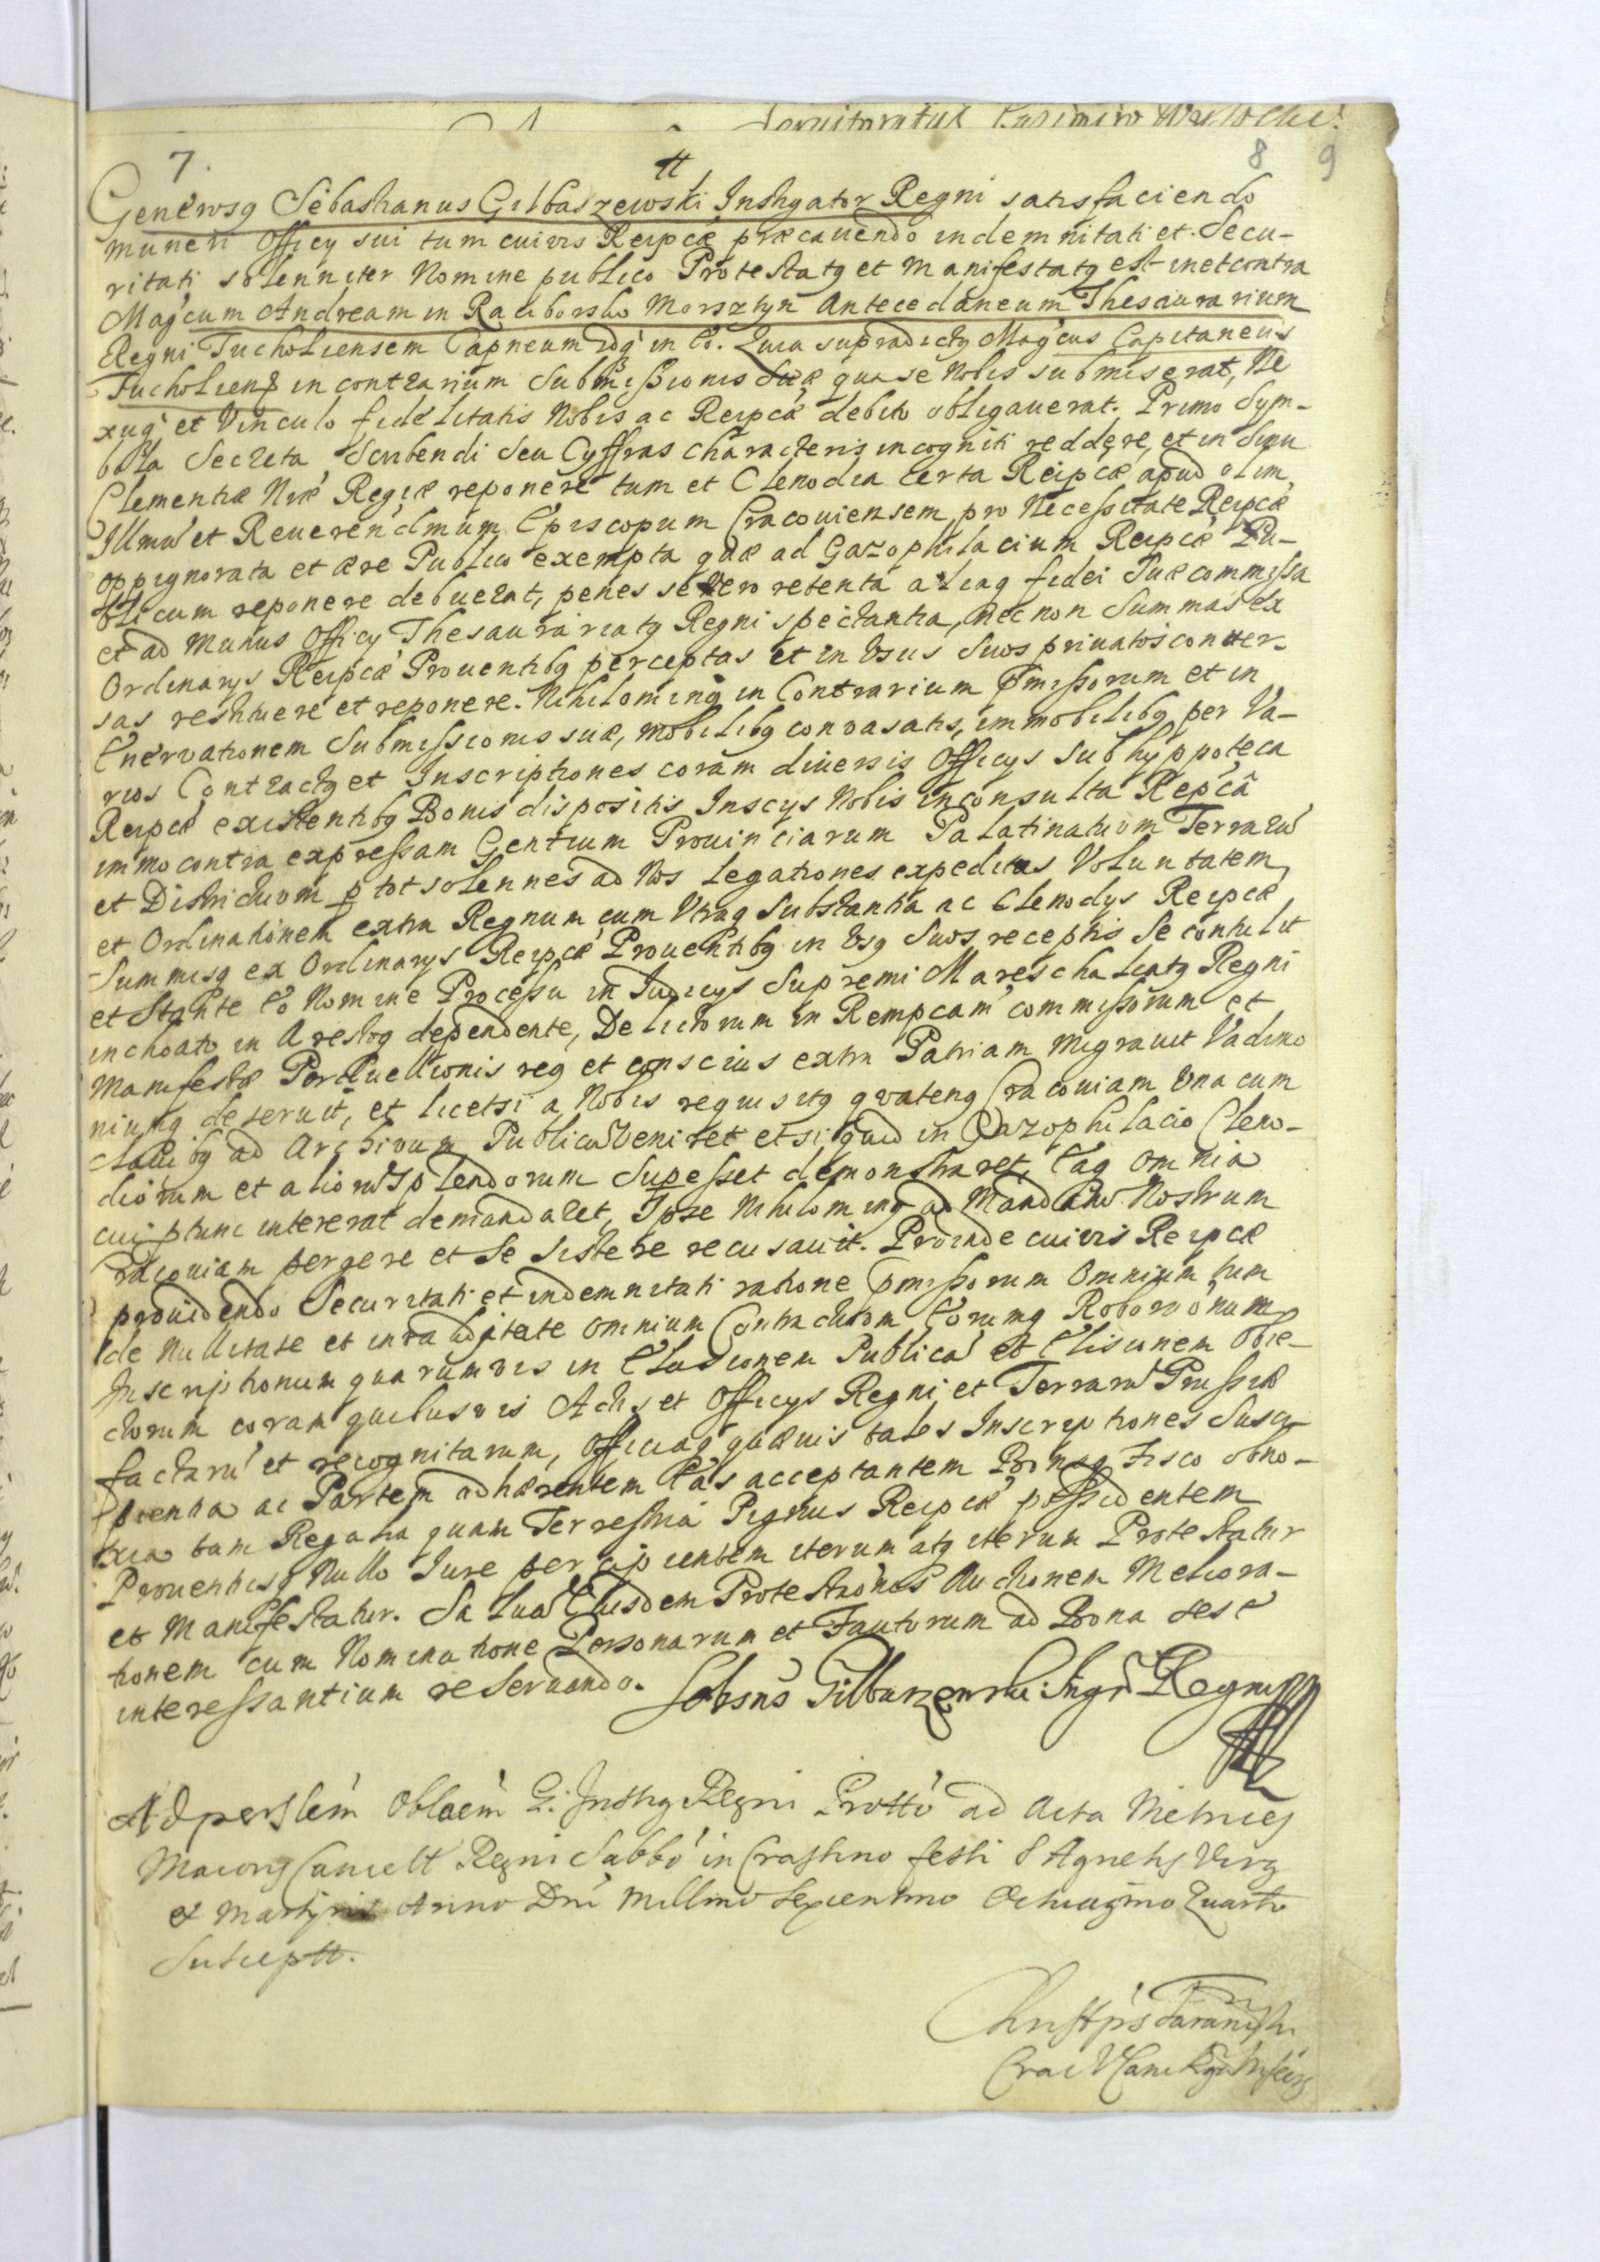 Casimiro
7. tt 8 9
Generosq Sebastianus Gilbaszewski Instigator Regni satisfaciendo
muneri Officy sui tum cuivis Reipcæ præcavendo indemnitati et Secu-
ritati solenniter Nomine publico Protestatq et manifestatq est in et contra
Magcum Andream in Raciborsko Morsztyn Antecedaneum Thesaurarium
Regni Tucholiensem Capneum Idq in Eo. Quia supradictq Magcus Capitaneus
Tucholiens in contrarium Submissionis Suæ qua se Nobis submiserat, Ne
xuq et Vinculo fidelitatis Nobis ac Reipcæ debito obligaverat. Primo Sym-
bola Secreta Scribendi Seu Cyffras characteris incogniti reddere et in Sinu
Clementiæ Nræ Regiæ reponere tum et Clenodia certa Reipcæ apud olim
Illmu et Reverendmum Episcopum Cracoviensem pro Necessitate Reipcæ
oppignorata et ære Publico exempta quæ ad Gazophilacium Reipcæ Pu-
blicum reponere debuerat, penes se vero retenta aliaq fidei Suæ commissa
et ad Munus Officy Thesaurariatq Regni spectantia, nec non Summas ex
Ordinarys Reipcæ Proventibq perceptas et in Usus Suos privatos conver-
sas restituere et reponere. Nihilominq in Contrarium pmissorum et in
Enervationem Submissionis suæ, mobilibq convasatis, immobilibq per Va-
rios Contractq et Inscriptiones coram diversis Officys Sub hyppoteca
Reipcæ existentibq Bonis dispositis Inscys Nobis inconsulta Repca
immo contra expressam Gentium Provinciarum Palatinatuum Terraru
et Districtuum p tot solennes ad Nos Legationes expeditas Voluntatem
et Ordinationem extra Regnum cum Utraq Substantia ac Clenodys Reipcæ
Summisq ex Ordinarys Reipcæ Proventibq in Usq Suos receptis Se contulit
et Stante Eo Nomine Processu in Judicys Supremi Mareschalcatq Regni
inchoato in Arestoq dependente, Delictorum in Rempcam commissorum et
Manifestæ Perduellionis req et conscius extra Patriam migravit Vadimo
niumq deseruit, et licet si a Nobis requisitq quatenq Cracoviam Una cum
clavibq ad Archivum Publicu Veniret et si quid in Gazophilacio Cleno-
diorum et alioru Splendorum Supesset demonstraret, Eaq omnia
cui ptunc intererat demandaret, Ipse Nihilominq ad Mandatu Nostrum
Cracoviam pergere et Se sistere recusavit. Proinde cuivis Reipcæ
providendo Securitati et indemnitati ratione pmissorum Omnium tum
de Nullitate et invaliditate omnium Contractuum Eorumq Roborationum
Inscriptionum quarumvis in Elusionem Publica et Elisionem Obie-
ctorum coram quibusvis Actis et Officys Regni et Terraru Prussiæ
factaru et recognitarum, Officiaq quævis tales Inscriptiones Susci-
pientia ac Partem adhærentem Eas acceptantem Bonaq Fisco obno-
xia tam Regalia quam Terrestria Pignus Reipcæ possidentem
Proventusq Nullo Jure percipientem iterum atq iterum Protestatur
et Manifestatur. Salva Eiusdem Protestaonis Auctionem Meliora-
tionem cum Nominatione Personarum et Fautorum ad Bona sese
interessantium reservando. Sebsns Gilbaszewski Ingr Regni
Ad persslem Oblaem G. Instig Regni Protto ad Acta Metrices
Maioris Cancell Regni Sabbo in Crastino festi S Agnetis Virg
et Martyris Anno Dni Millmo Sexcentmo Octuagmo Quarto
Susceptt.
Christps